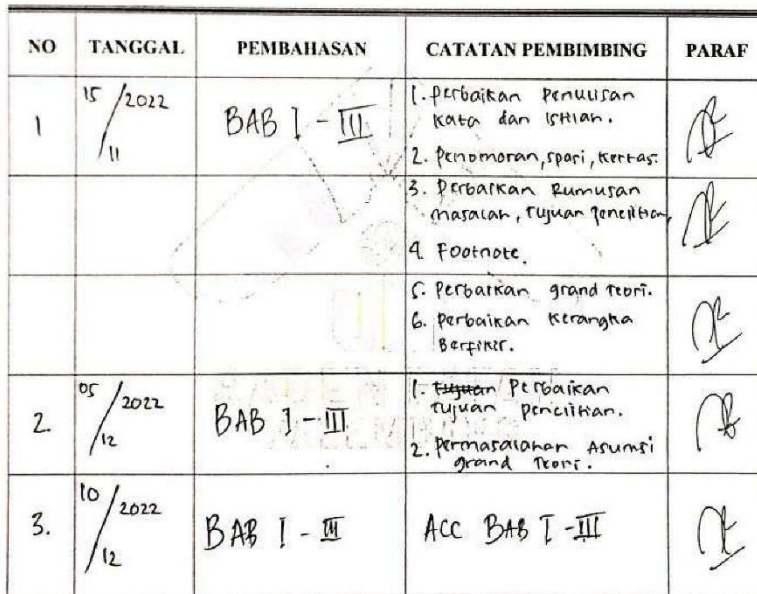 NO TANGGAL PEMBAHASAN CATATAN PEMBIMBING PARAF
1 15/11 2022 BAB I - III 1. perbaikan penulisan
kata dan istilah.
2. penomoran, spasi, kertas.
3. Perbaikan Rumusan
masalah, tujuan penelitian,
4. Footnote.
5. Perbaikan grand teori.
6. perbaikan kerangka
Berfikir.
2. 05/12 2022 BAB I - III 1. tujuan Perbaikan
tujuan penelitian.
2. Permasalahan Asumsi
grand Teori.
3. 10/12 2022 BAB I - III ACC BAB I - III